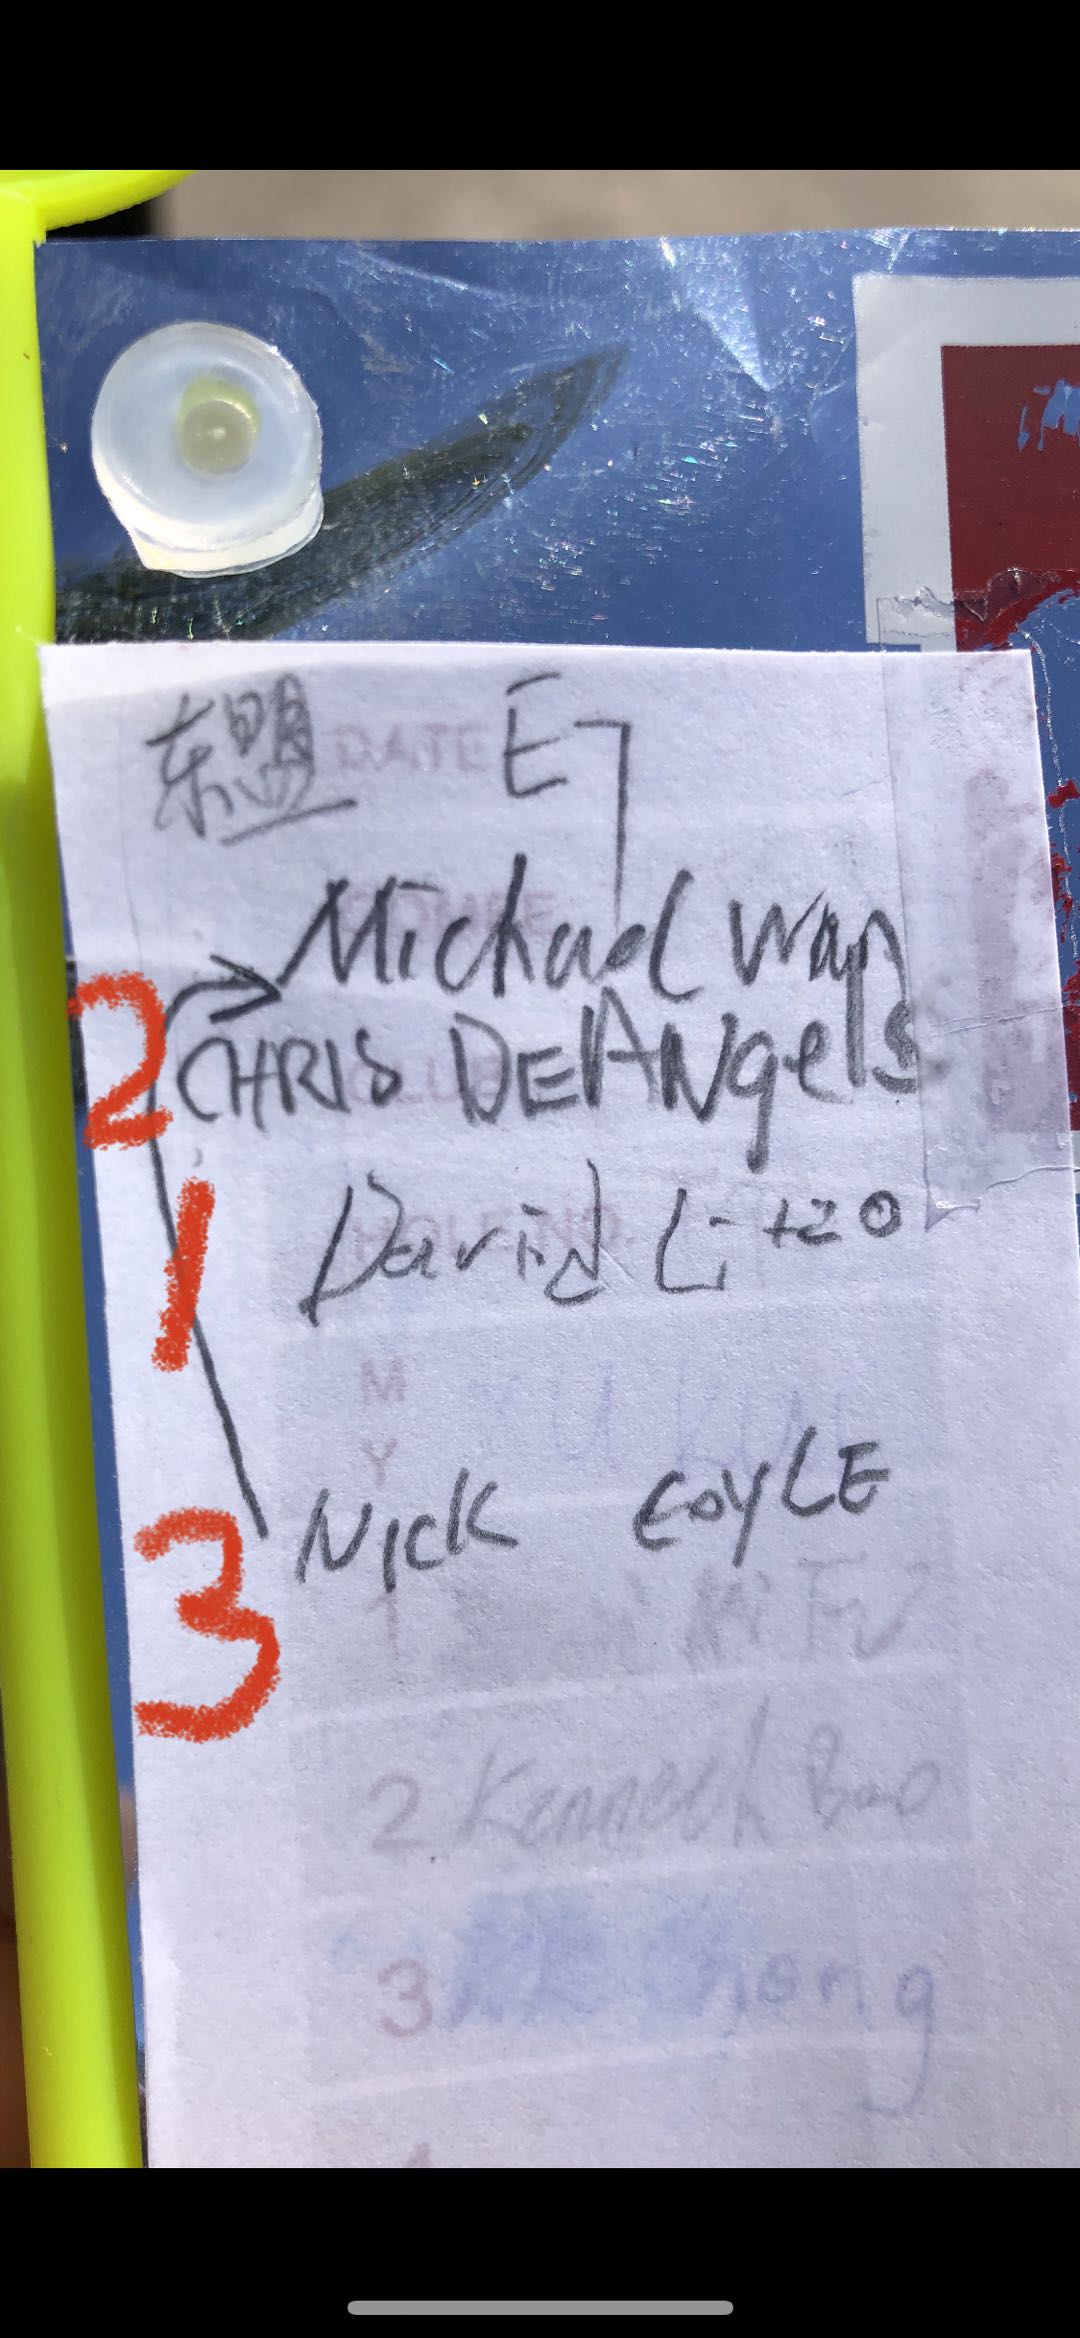 东盟 E7
Michael Wan
2 CHRIS DEANgels
1
David Litzo
M
Y
Nick COYLE
3
1
2 Kenneth Bao
3